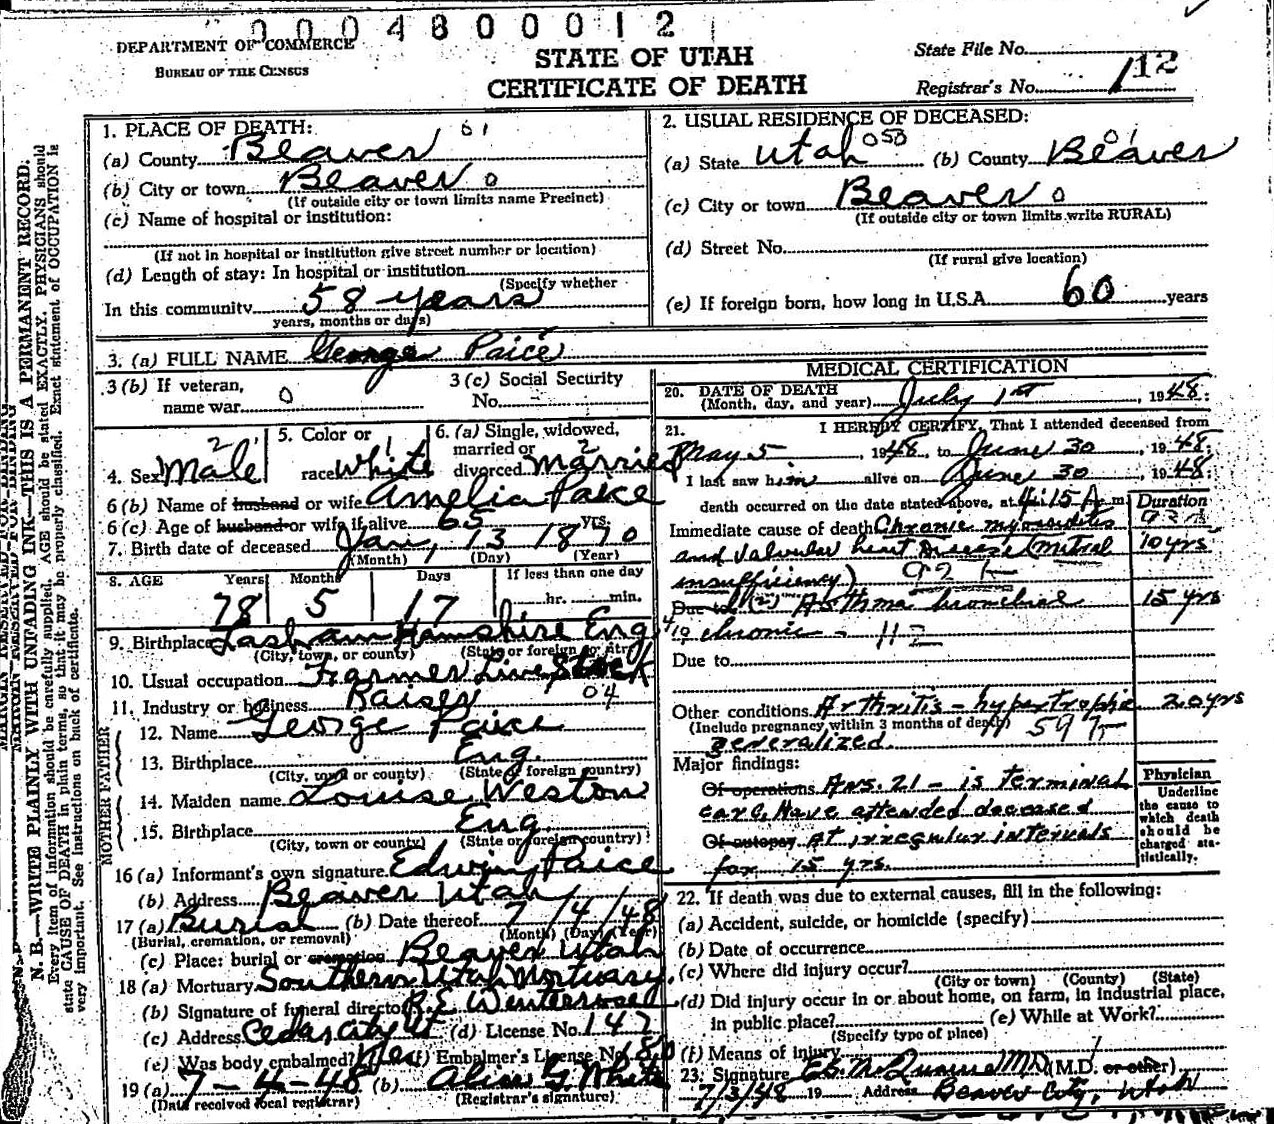 0004800012
DEPARTMENT OF COMMERCE
BUREAU OF THE CENSUS
STATE OF UTAH
CERTIFICATE OF DEATH
State File No.
Registrar's No. 112
MARGIN RESERVED FOR BINDING
N. B.—WRITE PLAINLY WITH UNFADING INK—THIS IS A PERMANENT RECORD.
Every item of information should be carefully supplied. AGE should be stated EXACTLY. PHYSICIANS should
state CAUSE OF DEATH in plain terms, so that it may be properly classified. Exact statement of OCCUPATION is
very important. See instructions on back of certificate.
1. PLACE OF DEATH: 61
(a) County Beaver
(b) City or town Beaver 0
(If outside city or town limits name Precinct)
(c) Name of hospital or institution:
(If not in hospital or institution give street number or location)
(d) Length of stay: In hospital or institution
(Specify whether
In this community 58 years
years, months or days)
2. USUAL RESIDENCE OF DECEASED:
(a) State Utah 050 (b) County Beaver 01
(c) City or town Beaver 0
(If outside city or town limits write RURAL)
(d) Street No.
(If rural give location)
(e) If foreign born, how long in U.S.A. 60 years
3. (a) FULL NAME George Paice
3 (b) If veteran,
name war 0
3 (c) Social Security
No.
4. Sex Male 2
5. Color or
race White 1
6. (a) Single, widowed,
married or
divorced married 2
6 (b) Name of husband or wife Amelia Paice
6 (c) Age of husband or wife if alive 65 yrs.
7. Birth date of deceased Jan, 13 1870
(Month) (Day) (Year)
8. AGE Years Months Days If less than one day
78 5 17 hr. min.
9. Birthplace Lasham Hampshire Eng
(City, town, or county) (State or foreign country)
10. Usual occupation Farmer Live Stock
11. Industry or business Raiser 04
FATHER
12. Name George Paice
13. Birthplace Eng.
(City, town or county) (State or foreign country)
MOTHER
14. Maiden name Louise Weston
15. Birthplace Eng.
(City, town or county) (State or foreign country)
16 (a) Informant's own signature Edwin Paice
(b) Address Beaver Utah
17 (a) Burial (b) Date thereof 7/4/48
(Burial, cremation, or removal) (Month) (Day) (Year)
(c) Place: burial or cremation Beaver Utah
18 (a) Mortuary Southern Utah Mortuary
(b) Signature of funeral director
(c) Address Cedar City Ut (d) License No. 147
(e) Was body embalmed? Yes (f) Embalmer's License No. 180
19 (a) 7-4-48 (b) Alice G. White
(Date received local registrar) (Registrar's signature)
MEDICAL CERTIFICATION
20. DATE OF DEATH
(Month, day, and year) July 1st, 1948
21. I HEREBY CERTIFY, That I attended deceased from
May 5, 1948, to June 30, 1948
I last saw him alive on June 30, 1948
death occurred on the date stated above, at 4:15 A m. Duration
Immediate cause of death Chronic myocarditis
and valvular heart disease (mitral 10 yrs
insufficiency)
Due to (2) Asthma bronchial 15 yrs
chronic - 112
Due to
Other conditions Arthritis - hypertrophic 20 yrs
(Include pregnancy within 3 months of death)
generalized.
Major findings:
Of operations Ans. 21 - is terminal
care. Have attended deceased
Of autopsy at irregular intervals
for 15 yrs.
Physician
Underline
the cause to
which death
should be
charged sta-
tistically.
22. If death was due to external causes, fill in the following:
(a) Accident, suicide, or homicide (specify)
(b) Date of occurrence
(c) Where did injury occur?
(City or town) (County) (State)
(d) Did injury occur in or about home, on farm, in industrial place,
in public place? (e) While at Work?
(Specify type of place)
(f) Means of injury
23. Signature (M.D. or other)
7/3/48 19 Address Beaver City, Utah